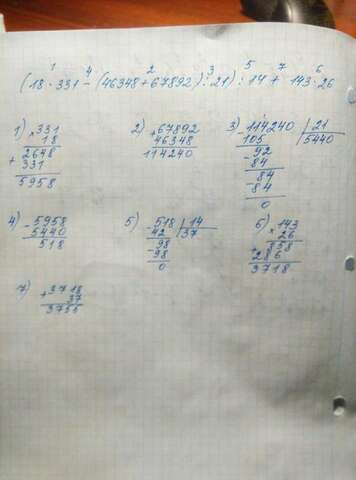 1 4 2 3 5 7 6
(18 · 331 - (46348 + 67892) : 21) : 14 + 143 · 26
1) × 331 2) + 67892 3) - 114240 | 21
18 46348 105 5440
2648 114240 - 92
+ 331 84
5958 - 84
84
0
4) - 5958 5) - 518 | 14 6) × 143
5440 42 37 26
518 - 98 + 858
98 286
0 3718
7) + 3718
37
3755